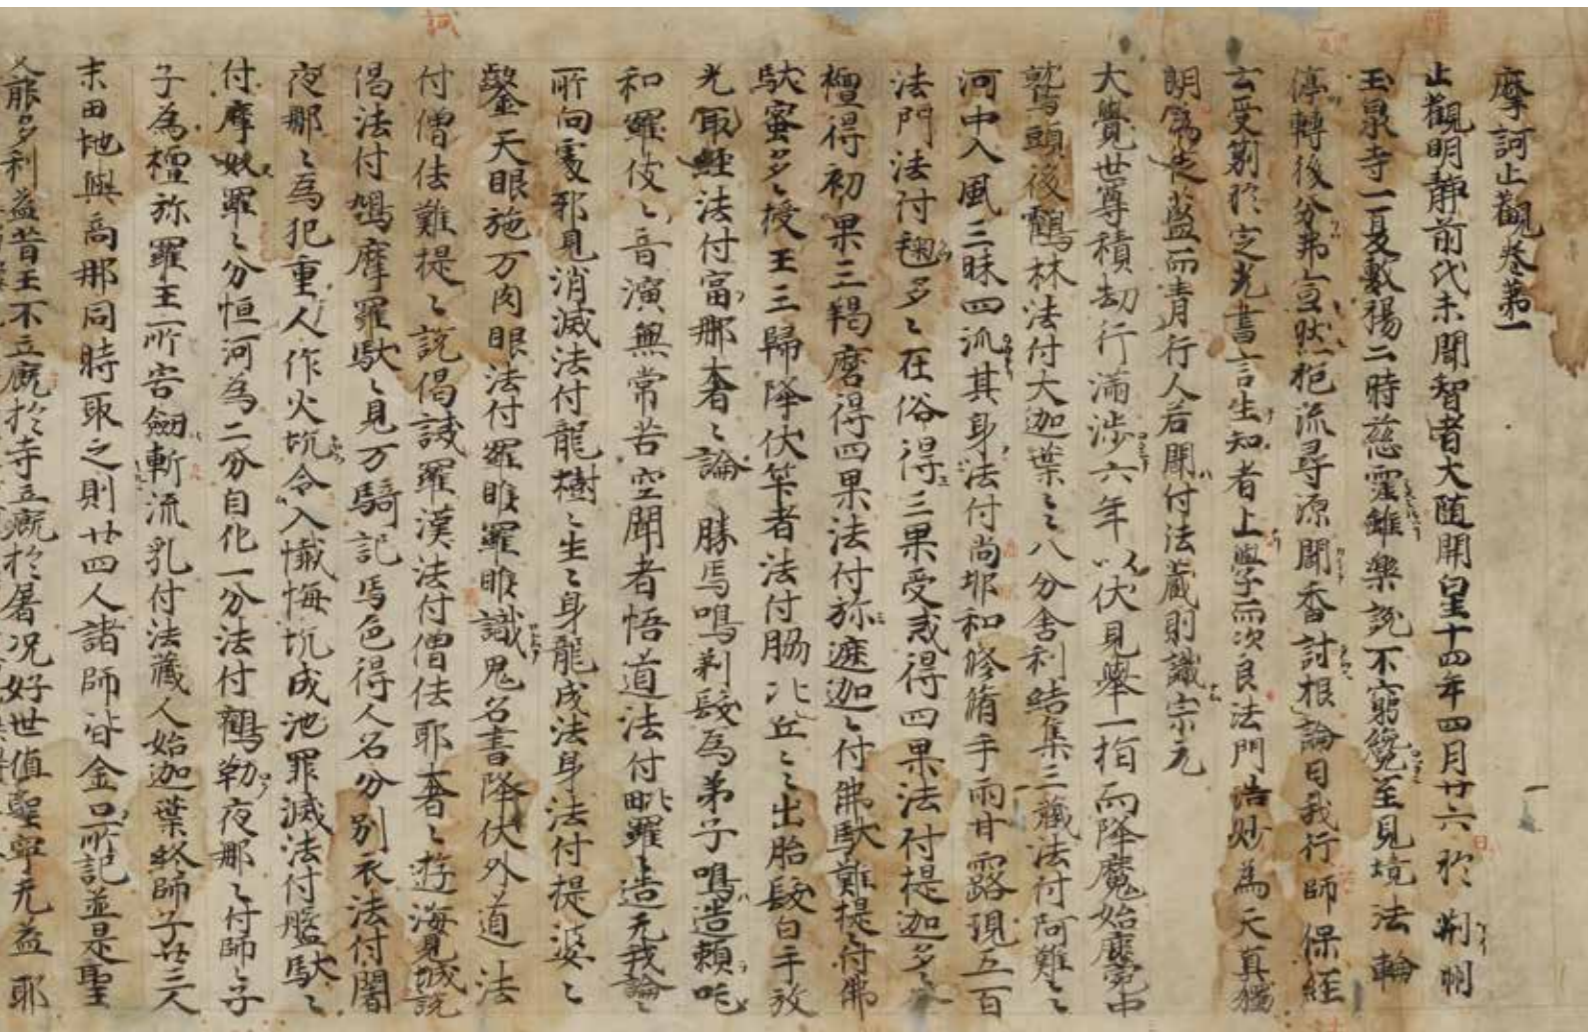 摩訶止觀卷第一
止觀明靜前代未聞智者大随開皇十四年四月廿六於荊州
玉泉寺一夏敷揚二時慈霔雖樂說不窮纔至見境法輪
停轉後分弗宣然挹流尋源聞香討根論曰我行師保經
云受莂於定光書言生知者上學而次良法門浩妙為天真獨
朗為從藍而青行人若聞付法藏則識宗元
大覺世尊積劫行滿涉六年以伏見舉一指而降魔始鹿苑中
鷲頭後鶴林法付大迦葉〻〻八分舍利結集三藏法付阿難〻〻
河中入風三昧四派其身法付尚那和修脩手雨甘露現五百
法門法付毱多〻在俗得三果受戒得四果法付提迦多〻
檀得初果三羯磨得四果法付弥遮迦〻付佛馱難提〻付佛
馱蜜多〻授王三歸降伏筭者法付脇比丘〻〻出胎髮白手放
光取經法付富那奢〻論勝馬鳴剃髮為弟子鳴造頼吒
和羅伎〻音演無常苦空聞者悟道法付毗羅〻造无我論〻
所向處邪見消滅法付龍樹〻生〻身龍成法身法付提婆〻
鑿天眼施万肉眼法付羅睺羅睺識鬼名書降伏外道法
付僧佉難提〻說偈試羅漢法付僧佉耶奢〻遊海見城說
偈法付鳩摩羅馱〻見万騎記馬色得人名分別衣法付闍
夜那〻為犯重人作火坑令入懺悔坑成池罪滅法付盤馱〻
付摩奴羅〻分恒河為二分自化一分法付鶴勒夜那〻付師〻子
子為檀弥羅王所害劒斬流乳付法藏人始迦葉終師子廿三人
末田地與商那同時取之則廿四人諸師皆金口所記並是聖
人能多利益昔王不立廐於寺立廐於屠況好世值聖寧无益耶